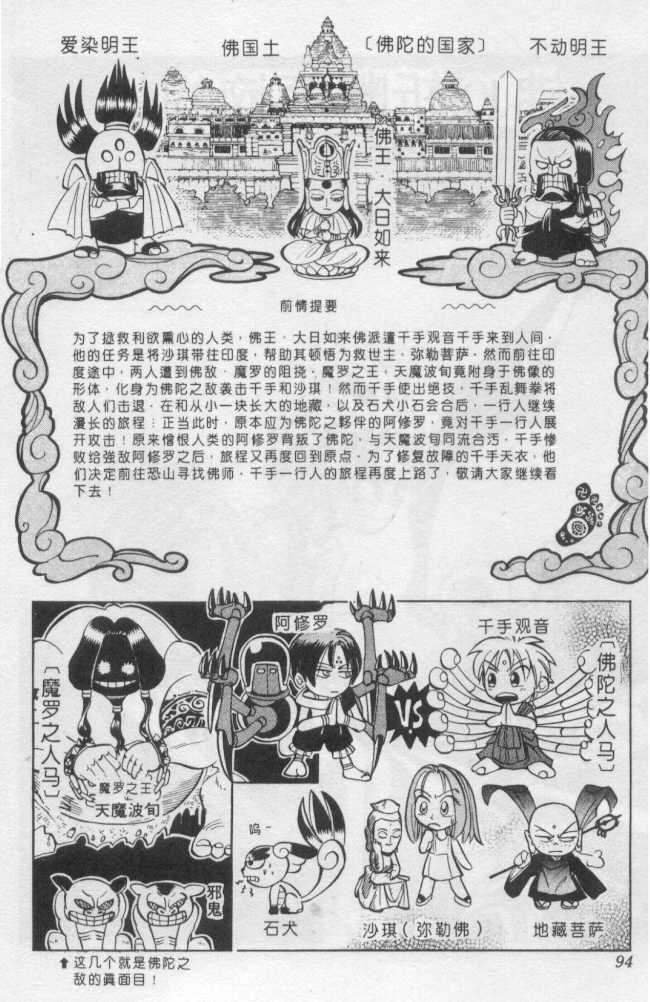 爱染明王
佛国土
〔佛陀的国家〕
不动明王
佛王 大日如来
前情提要
为了拯救利欲熏心的人类，佛王．大日如来佛派遣千手观音千手来到人间．
他的任务是将沙琪带往印度，帮助其顿悟为救世主．弥勒菩萨．然而前往印
度途中，两人遭到佛敌．魔罗的阻挠．魔罗之王．天魔波旬竟附身于佛像的
形体，化身为佛陀之敌袭击千手和沙琪！然而千手使出绝技，千手乱舞拳将
敌人们击退．在和从小一块长大的地藏，以及石犬小石会合后，一行人继续
漫长的旅程；正当此时，原本应为佛陀之夥伴的阿修罗，竟对千手一行人展
开攻击！原来憎恨人类的阿修罗背叛了佛陀，与天魔波旬同流合污．千手惨
败给強敌阿修罗之后，旅程又再度回到原点．为了修复故障的千手天衣，他
们决定前往恐山寻找佛师．千手一行人的旅程再度上路了，敬请大家继续看
下去！
阿修罗
千手观音
〔魔罗之人马〕
〔佛陀之人马〕
VS
魔罗之王
天魔波旬
呜~
邪鬼
石犬
沙琪（弥勒佛）
地藏菩萨
⬆这几个就是佛陀之
敌的真面目！
94